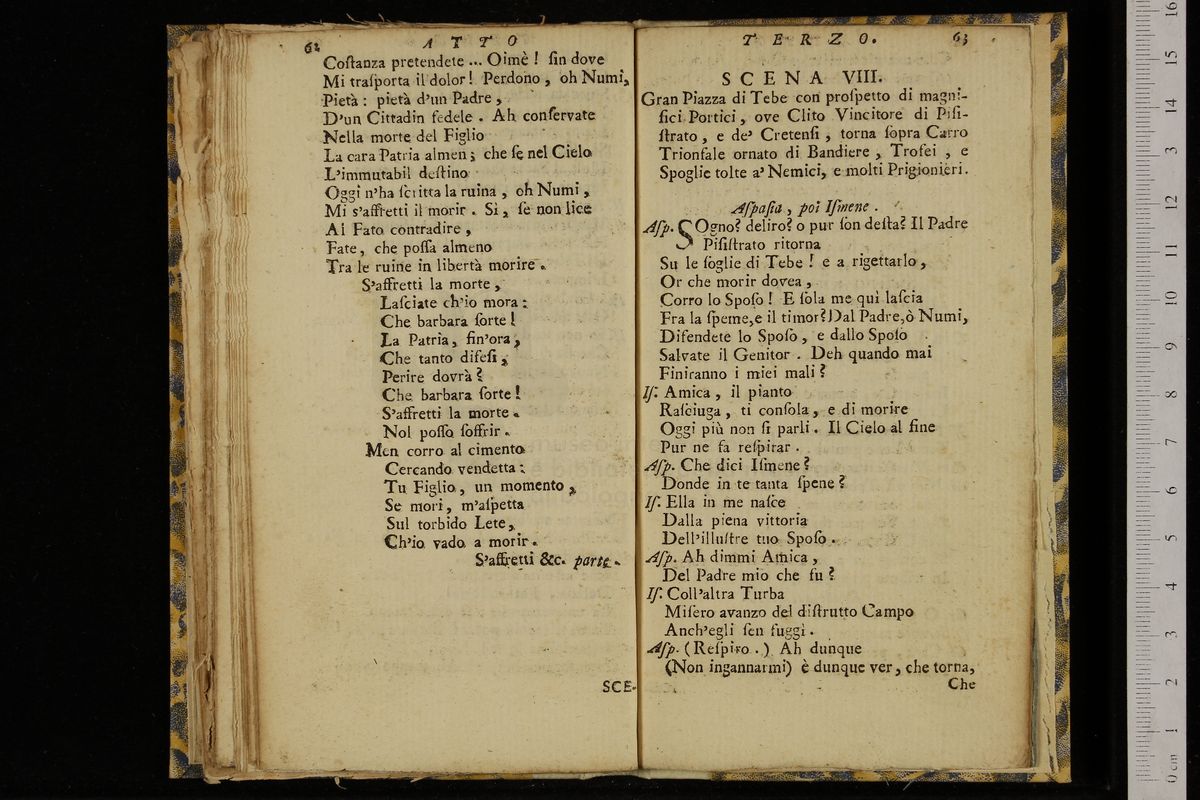 62
A T T O
Coſtanza pretendete ... Oimè ! ſin dove
Mi traſporta il dolor ! Perdono , oh Numi,
Pietà : pietà d'un Padre ,
D'un Cittadin fedele . Ah conſervate
Nella morte del Figlio
La cara Patria almen ; che ſe nel Cielo
L'immutabil deſtino
Oggi n'ha ſcritta la ruina , oh Numi ,
Mi s'affretti il morir . Sì , ſe non lice
Al Fato contradire ,
Fate , che poſſa almeno
Tra le ruine in libertà morire .
S'affretti la morte ,
Laſciate ch'io mora :
Che barbara ſorte !
La Patria , fin'ora ,
Che tanto difeſi ,
Perire dovrà ?
Che barbara ſorte !
S'affretti la morte .
Nol poſſo ſoffrir .
Men corro al cimento
Cercando vendetta :
Tu Figlio , un momento ,
Se mori , m'aſpetta
Sul torbido Lete ,
Ch'io vado a morir .
S'affretti &c. parte .
SCE-
T E R Z O .
63
SCENA VIII.
Gran Piazza di Tebe con proſpetto di magni-
fici Portici , ove Clito Vincitore di Piſi-
ſtrato , e de' Cretenſi , torna ſopra Carro
Trionfale ornato di Bandiere , Trofei , e
Spoglie tolte a' Nemici, e molti Prigionieri.
Aſpaſia , poi Iſmene .
Aſp. SOgno? deliro? o pur ſon deſta? Il Padre
Piſiſtrato ritorna
Su le ſoglie di Tebe ! e a rigettarlo ,
Or che morir dovea ,
Corro lo Spoſo ! E ſola me quì laſcia
Fra la ſpeme,e il timor? Dal Padre,ò Numi,
Difendete lo Spoſo , e dallo Spoſo
Salvate il Genitor . Deh quando mai
Finiranno i miei mali ?
Iſ. Amica , il pianto
Raſciuga , ti conſola , e di morire
Oggi più non ſi parli . Il Cielo al fine
Pur ne fa reſpirar .
Aſp. Che dici Iſmene ?
Donde in te tanta ſpene ?
Iſ. Ella in me naſce
Dalla piena vittoria
Dell'illuſtre tuo Spoſo .
Aſp. Ah dimmi Amica ,
Del Padre mio che fu ?
Iſ. Coll'altra Turba
Miſero avanzo del diſtrutto Campo
Anch'egli ſen fuggì .
Aſp. (Reſpiro .) Ah dunque
(Non ingannarmi) è dunque ver, che torna,
Che